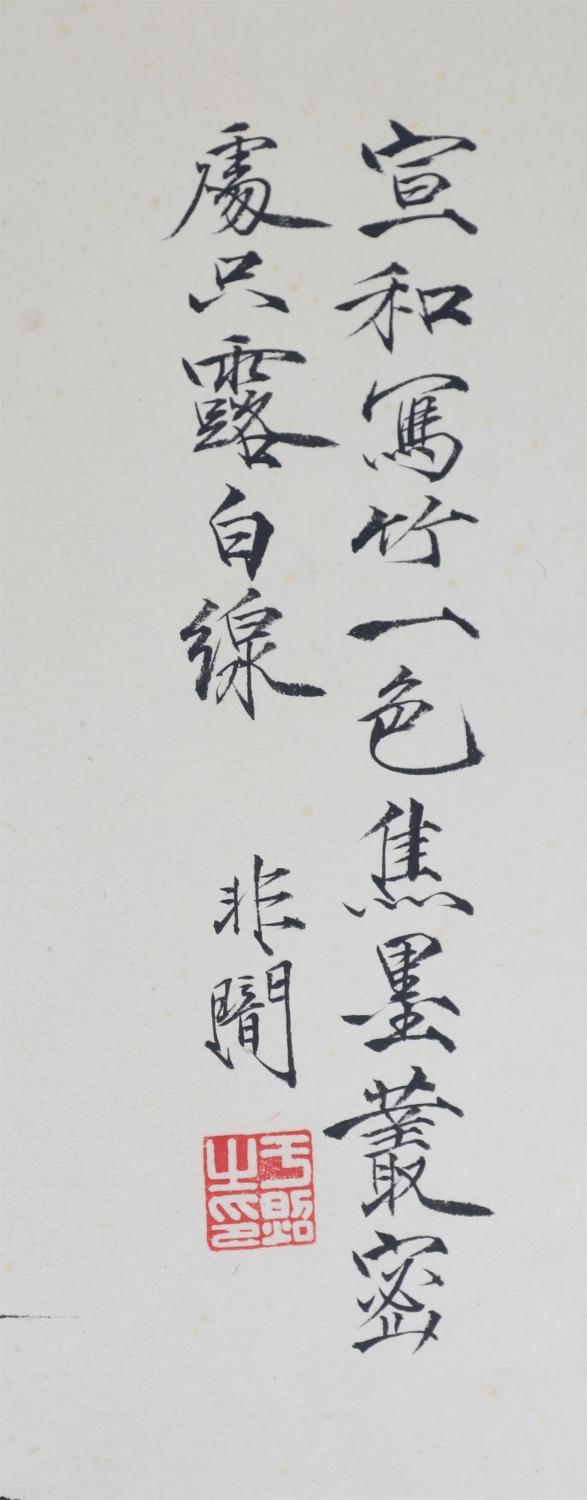 宣和寫竹一色焦墨叢密
處只露白線
非闇
于照之印